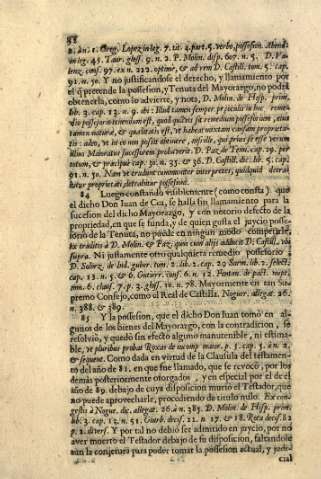 88
n. an. 1. Greg. Lopez in leg. 7. tit. 4. part. 5. verbo, possession. Abend.
in leg. 45. Taur. gloss. 9. n. 2. P. Molin. disp. 607. n. 5. D. Va-
lenz. cons. 97. ex n. 222. optimè, & ad rem D. Castill. tom. 5. cap.
91. n. 50. Y no justificandose el derecho, y llamamiento por
el q̃ pretende la possesion, y Tenuta del Mayorazgo, no podrà
obtenerla, como lo advierte, y nota, D. Molin. de Hisp. prim.
lib. 3. cap. 13. n. 9. ibi: Illud tamen semper præ oculis in hoc reme-
dio possessorio tenendum est, quod quamvis sit remedium possessorium, eius
tamen naturæ, & qualitatis est, ut habeat mixtam causam proprieta-
tis: adeo, ut in eo non possit obtinere, nisi is, qui prius se esse verum
illius Maioratus successorem probaverit. D. Paz, de Tenut. cap. 29. per
totum, & præcipuè cap. 30. n. 35. & 36. D. Castill. dic. lib. 5. cap.
91. n. 50. Nam ut tradunt communiter interpretes, quidquid detrahitur
proprietati, detrahitur possessioni.
84 Luego constando visiblemente (como consta) que
el dicho Don Juan de Cea, se halla sin llamamiento para la
sucesion del dicho Mayorazgo, y con notorio defecto de la
propriedad, en que se funda, y de quien gusta el juycio posse-
sorio de la Tenuta, no puede en ningun modo competirle,
ex traditis à D. Molin. & Paz, quos cum alijs adducit D. Castill. ubi
supra. Ni justamente otro qualquiera remedio possessorio;
D. Solorz. de Ind. guber. tom. 2. lib. 2. cap. 29 Sarm. lib. 2. select.
cap. 13. n. 5. & 6. Gutierr. cons. 6. n. 12. Fontan. de pact. nupt.
tom. 6. claus. 7. p. 3. gloss. n. 78. Mayormente en tan Su-
premo Consejo, como el Real de Castilla. Noguer. allegat. 26.
n. 388. & 389.
85 Y la possesion, que el dicho Don Juan tomò en al-
gunos de los bienes del Mayorazgo, con la contradicion, se
resolviò, y quedò sin efecto alguno manutenible, ni estima-
ble, ut pluribus probat Roxas de incomp. maior. p. 5. cap. 5. à n. 2.
& sequent. Como dada en virtud de la Clausula del testamen-
to del año de 81. en que fue llamado, que se revocò, por los
demàs posteriormente otorgados, y en especial por el de el
año de 89. debajo de cuya disposicion muriò el Testador, que
no puede aprovecharle, procediendo de titulo nulo. Ex con-
gestis à Nogue. dic. allegat. 26. à n. 385. D. Molin. de Hisp. prim.
lib. 3. cap. 12. n. 51. Gurb. decis. 21. n. 17. & 18. Rota decis. 82
p. 2. divers. Y por tal no debiò ser admitido en juycio, por no
aver muerto el Testador debajo de su disposicion, faltandole
aun la conjetura para poder tomar la possesion actual, y judi-
cial